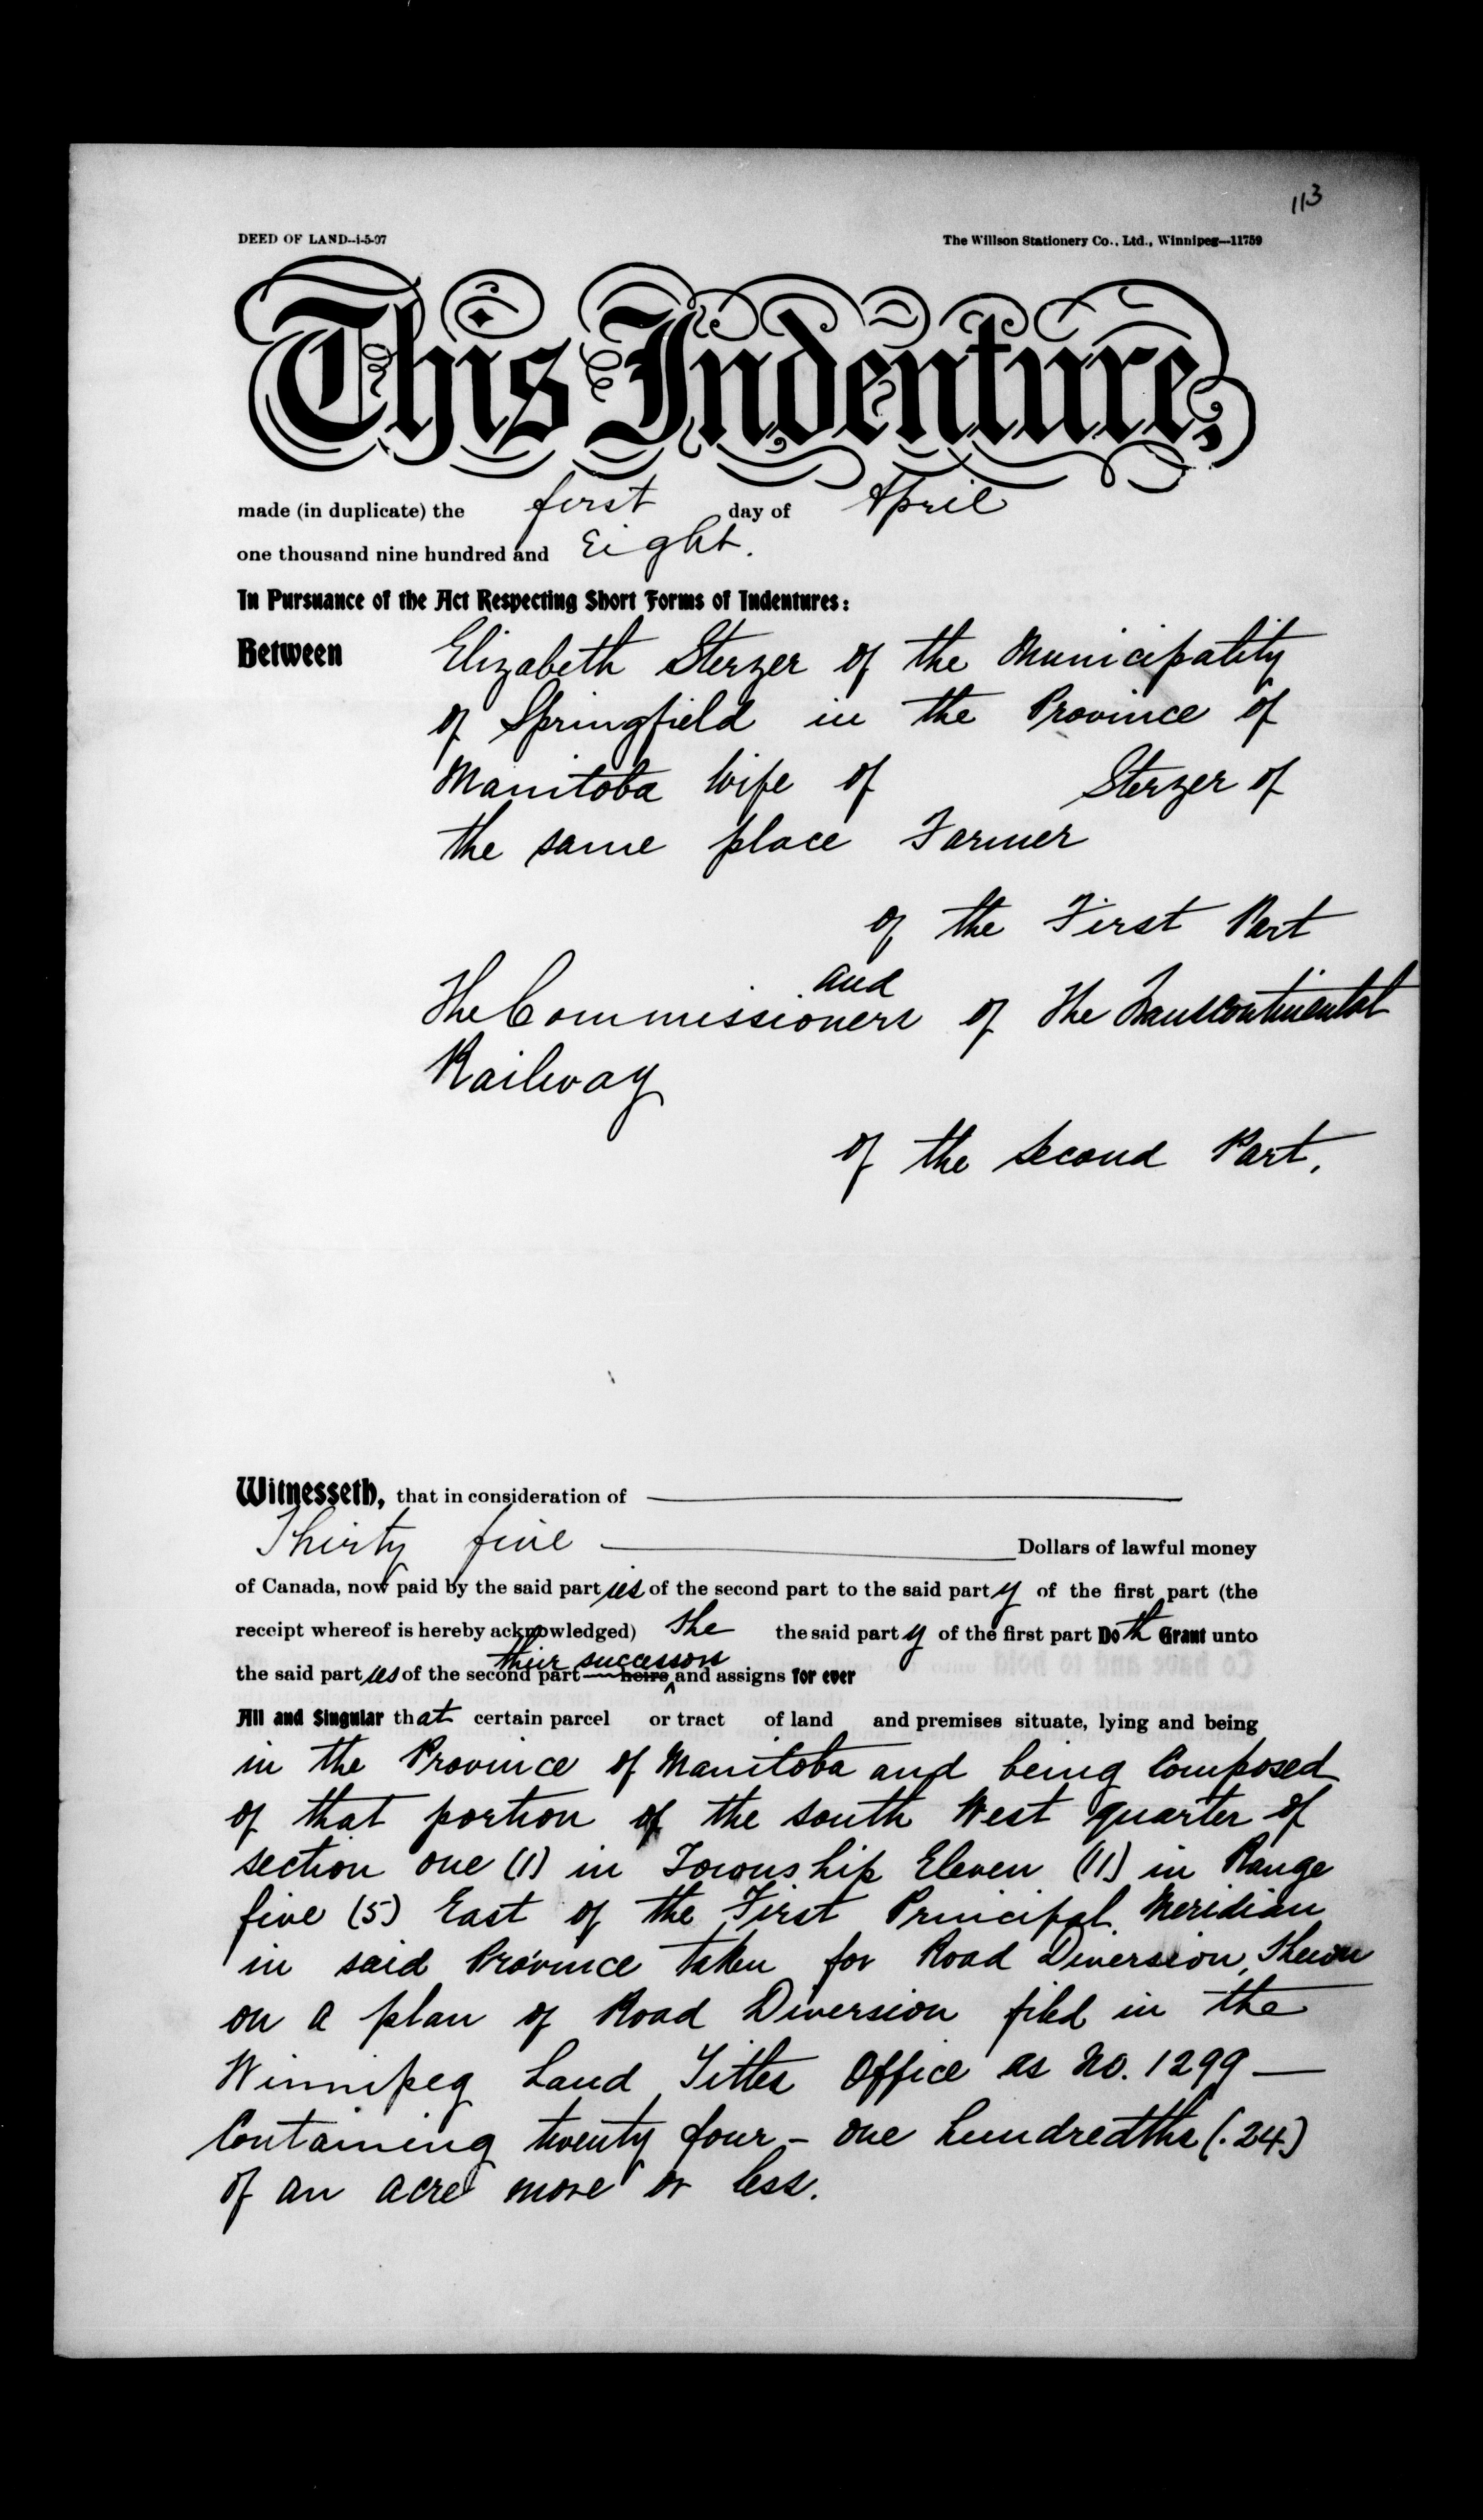 113
DEED OF LAND--1-5-07
The Willson Stationery Co., Ltd., Winnipeg--11759
This Indenture,
made (in duplicate) the first day of April
one thousand nine hundred and Eight.
In Pursuance of the Act Respecting Short Forms of Indentures:
Between Elizabeth Sterzer of the Municipality
of Springfield in the Province of
Manitoba Wife of Sterzer of
the same place Farmer
of the First Part
and
The Commissioners of the Transcontinental
Railway
of the Second Part.
Witnesseth, that in consideration of
Thirty five Dollars of lawful money
of Canada, now paid by the said parties of the second part to the said party of the first part (the
receipt whereof is hereby acknowledged) She the said party of the first part Doth Grant unto
their successors
the said parties of the second part heirs and assigns for ever
All and Singular that certain parcel or tract of land and premises situate, lying and being
in the Province of Manitoba and being Composed
of that portion of the South West quarter of
section one (1) in Township Eleven (11) in Range
five (5) East of the First Principal Meridian
in said Province taken for Road Diversion, Shewn
on a plan of Road Diversion filed in the
Winnipeg Land Titles Office as No. 1299 —
Containing twenty four - one hundredths (.24)
of an acre more or less.